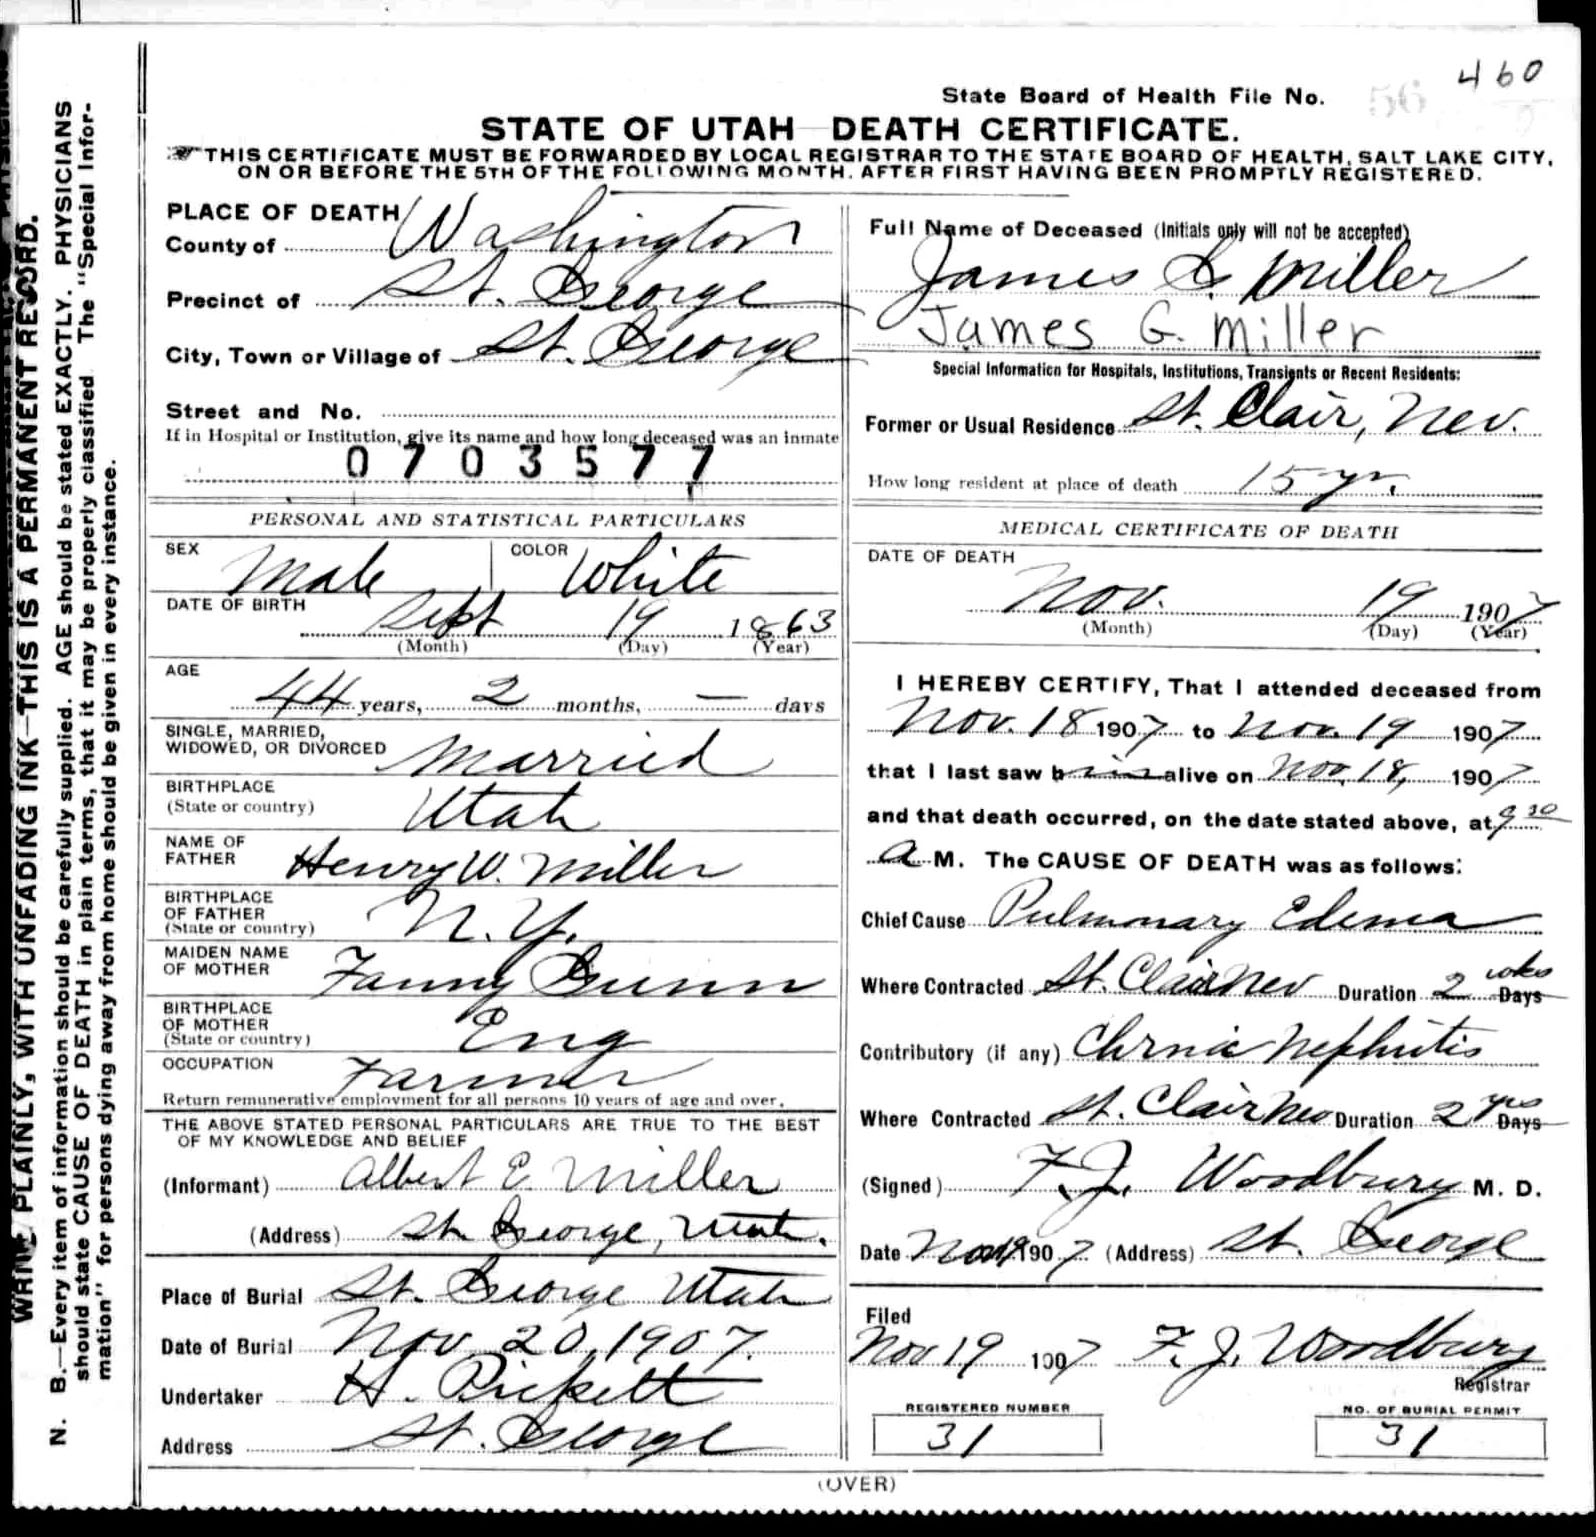 460
State Board of Health File No. 56
STATE OF UTAH—DEATH CERTIFICATE.
THIS CERTIFICATE MUST BE FORWARDED BY LOCAL REGISTRAR TO THE STATE BOARD OF HEALTH, SALT LAKE CITY,
ON OR BEFORE THE 5TH OF THE FOLLOWING MONTH, AFTER FIRST HAVING BEEN PROMPTLY REGISTERED.
WRITE PLAINLY, WITH UNFADING INK—THIS IS A PERMANENT RECORD.
N. B.—Every item of information should be carefully supplied. AGE should be stated EXACTLY. PHYSICIANS
should state CAUSE OF DEATH in plain terms, that it may be properly classified The "Special Infor-
mation" for persons dying away from home should be given in every instance.
PLACE OF DEATH
County of Washington
Precinct of St. George
City, Town or Village of St. George
Street and No.
If in Hospital or Institution, give its name and how long deceased was an inmate
0703577
PERSONAL AND STATISTICAL PARTICULARS
SEX Male COLOR White
DATE OF BIRTH
Sept 19 1863
(Month) (Day) (Year)
AGE
44 years, 2 months, — days
SINGLE, MARRIED,
WIDOWED, OR DIVORCED Married
BIRTHPLACE
(State or country) Utah
NAME OF
FATHER Henry W. Miller
BIRTHPLACE
OF FATHER
(State or country) N. Y.
MAIDEN NAME
OF MOTHER Fanny Gunn
BIRTHPLACE
OF MOTHER
(State or country) Eng
OCCUPATION Farmer
Return remunerative employment for all persons 10 years of age and over.
THE ABOVE STATED PERSONAL PARTICULARS ARE TRUE TO THE BEST
OF MY KNOWLEDGE AND BELIEF
(Informant) Albert E. Miller
(Address) St. George, Utah.
Place of Burial St. George Utah
Date of Burial Nov 20, 1907.
Undertaker H. Pickett
Address St. George
Full Name of Deceased (Initials only will not be accepted)
James G. Miller
James G. Miller
Special Information for Hospitals, Institutions, Transients or Recent Residents:
Former or Usual Residence St. Clair, Nev.
How long resident at place of death 15 yr.
MEDICAL CERTIFICATE OF DEATH
DATE OF DEATH
Nov. 19 1907
(Month) (Day) (Year)
I HEREBY CERTIFY, That I attended deceased from
Nov. 18 1907 to Nov. 19 1907
that I last saw him alive on Nov. 18, 1907
and that death occurred, on the date stated above, at 9 30
A M. The CAUSE OF DEATH was as follows:
Chief Cause Pulmonary Edema
Where Contracted St. Clair Nev Duration 2 wks Days
Contributory (if any) Chrnic Nephritis
Where Contracted St. Clair Nev Duration 2 yrs Days
(Signed) F. J. Woodbury M. D.
Date Nov 19 1907 (Address) St. George
Filed
Nov 19 1907 F. J. Woodbury
Registrar
REGISTERED NUMBER
31
NO. OF BURIAL PERMIT
31
(OVER)